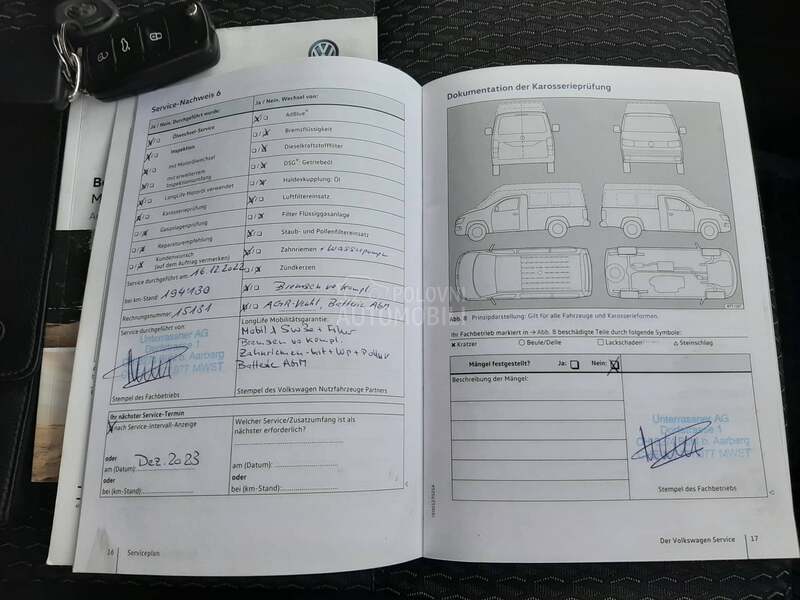 Service-Nachweis 6
Ja / Nein. Durchgeführt wurde:
Ölwechsel Service
Inspektion
mit Motorölwechsel
mit erweitertem Inspektionsumfang
LongLife-Motoröl verwendet
Karosserieprüfung
Gasanlagenprüfung
Reparaturempfehlung
Kundenwunsch
(auf dem Auftrag vermerken)
Service durchgeführt am: 16.12.2022
bei km-Stand: 194'130
Rechnungsnummer: 15151
Service durchgeführt von
Unterrassner AG
Stempel des Fachbetriebs
Ja / Nein. Wechsel von:
AdBlue®
Bremsflüssigkeit
Dieselkraftstofffilter
DSG®: Getriebeöl
Haldexkupplung: Öl
Luftfiltereinsatz
Filter Flüssiggasanlage
Staub- und Pollenfiltereinsatz
Zahnriemen + Wasserpumpe
Zündkerzen
Bremsen vo kompl.
AGR-Ventil, Batterie AGM
LongLife Mobilitätsgarantie:
Mobil 1 5W30 + Filter
Bremsen vo kompl.
Zahnriemen-kit + Wp + Pollen
Batterie AGM
Stempel des Volkswagen Nutzfahrzeuge Partners
Ihr nächster Service-Termin
nach Service-Intervall-Anzeige
oder
am (Datum): Dez. 2023
oder
bei (km-Stand):
Welcher Service/Zusatzumfang ist als
nächster erforderlich?
am (Datum):
oder
bei (km-Stand):
16 Serviceplan
Dokumentation der Karosserieprüfung
Abb. 8 Prinzipdarstellung: Gilt für alle Fahrzeuge und Karosserieformen.
Ihr Fachbetrieb markiert in → Abb. 8 beschädigte Teile durch folgende Symbole:
× Kratzer
○ Beule/Delle
□ Lackschaden
△ Steinschlag
Mängel festgestellt? Ja: Nein:
Beschreibung der Mängel:
Unterrassner AG
Stempel des Fachbetriebs
Der Volkswagen Service 17
POLOVNI
AUTOMOBILI